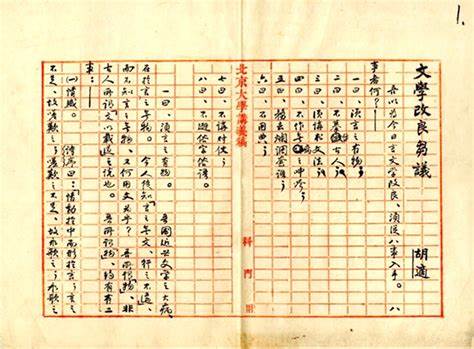 1.
文學改良芻議
胡適
吾以為今日言文學改良,須從八事入手。八
事者何?——
一曰,須言之有物。
二曰,不摹倣古人。
三曰,須講求文法。
四曰,不作無病之呻吟。
五曰,務去爛調套語。
六曰,不用典。
七曰,不講對仗。
八曰,不避俗字俗語。
北京大學講義稿
科門
一曰,須言之有物。 吾國近世文學之大病,
在於言之無物。今人徒知「言之無文,行之不遠」,
而不知言之無物,又何用文為乎?吾所謂「物」,非
古人所謂「文以載道」之說也。吾所謂物,約有二
事:——
(一)情感。 詩序曰:「情動於中而形於言。言之
不足,故嗟歎之。嗟歎之不足,故永歌之。永歌之